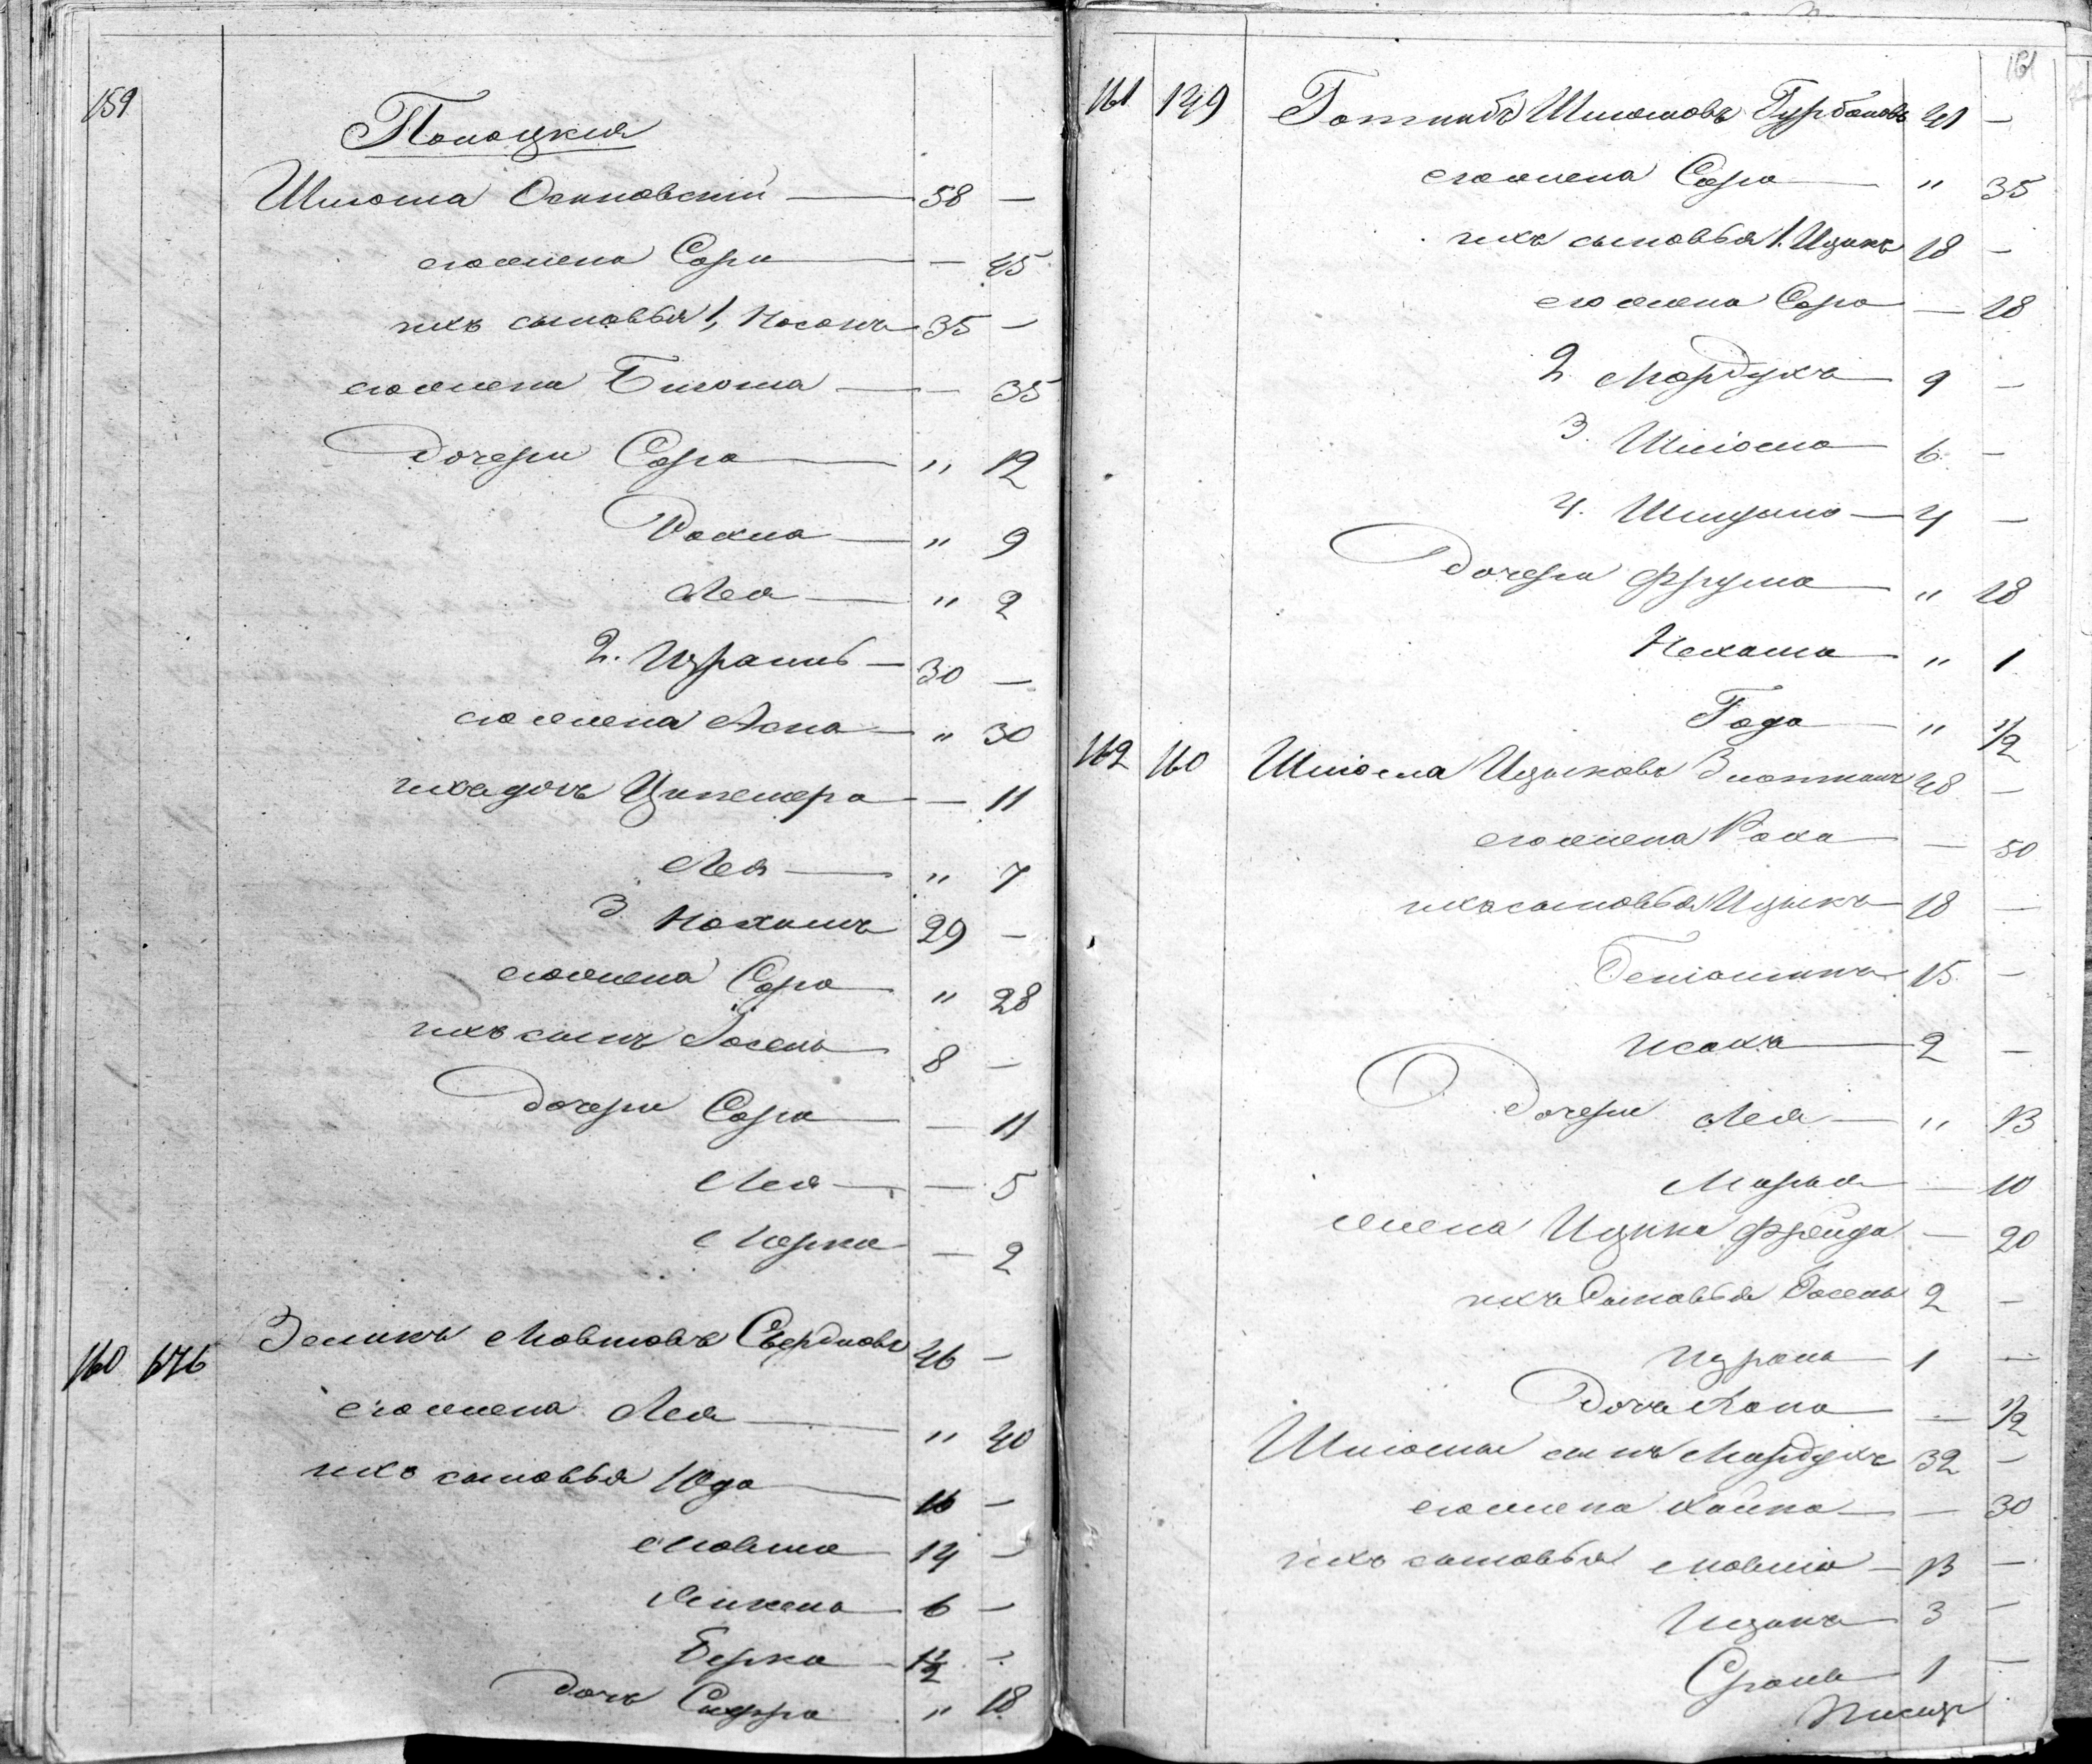 159
Полоцкия
Шлома Осиновскій — 58 —
его жена Сора — — 45
ихъ сыновья 1, Носонъ — 35 —
его жена Блюма — — 35
дочери Сора — " 12
Рохла — " 9
Лея — " 2
2. Израиль — 30 —
его жена Асна — " 30
ихъ дочь — 11
Лея — " 7
3 Нохимъ 29 —
его жена Сора — " 28
ихъ сынъ Іосель — 8 —
дочери Сора — — 11
Лея — — 5
Мерка — 2
160 676 Зеликъ Мовшовъ Свердловъ 46 —
его жена Лея — " 40
ихъ сыновья Юда — 16 —
Мовша — 14 —
6 —
Берка — 1 1/2 —
дочь " 18
161
161 149 Шлемовъ 41 —
его жена Сора — " 35
ихъ сыновья 1. Ицикъ 18 —
его жена Сора — 18
2. Мордухъ — 9 —
3. Шлома — 6 —
4. — 4 —
дочери Фрума — " 18
Нехама — " 1
Года — " 1/2
162 160 Шлома Ицыковъ 48 —
его жена Роха — — 50
ихъ сыновья Ицыкъ — 18 —
Беніоминъ — 15 —
Исакъ — 2 —
дочери Лея — " 13
Марья — — 10
жена Ицика Фрейда — 20
ихъ сыновья Іосель 2 —
Израиль — 1 —
дочь Хана — — 1/2
Шломы сынъ Мордухъ 32 —
его жена Хайка — — 30
ихъ сыновья Мовша — 13 —
Ицикъ — 3 —
Сроль — 1 —